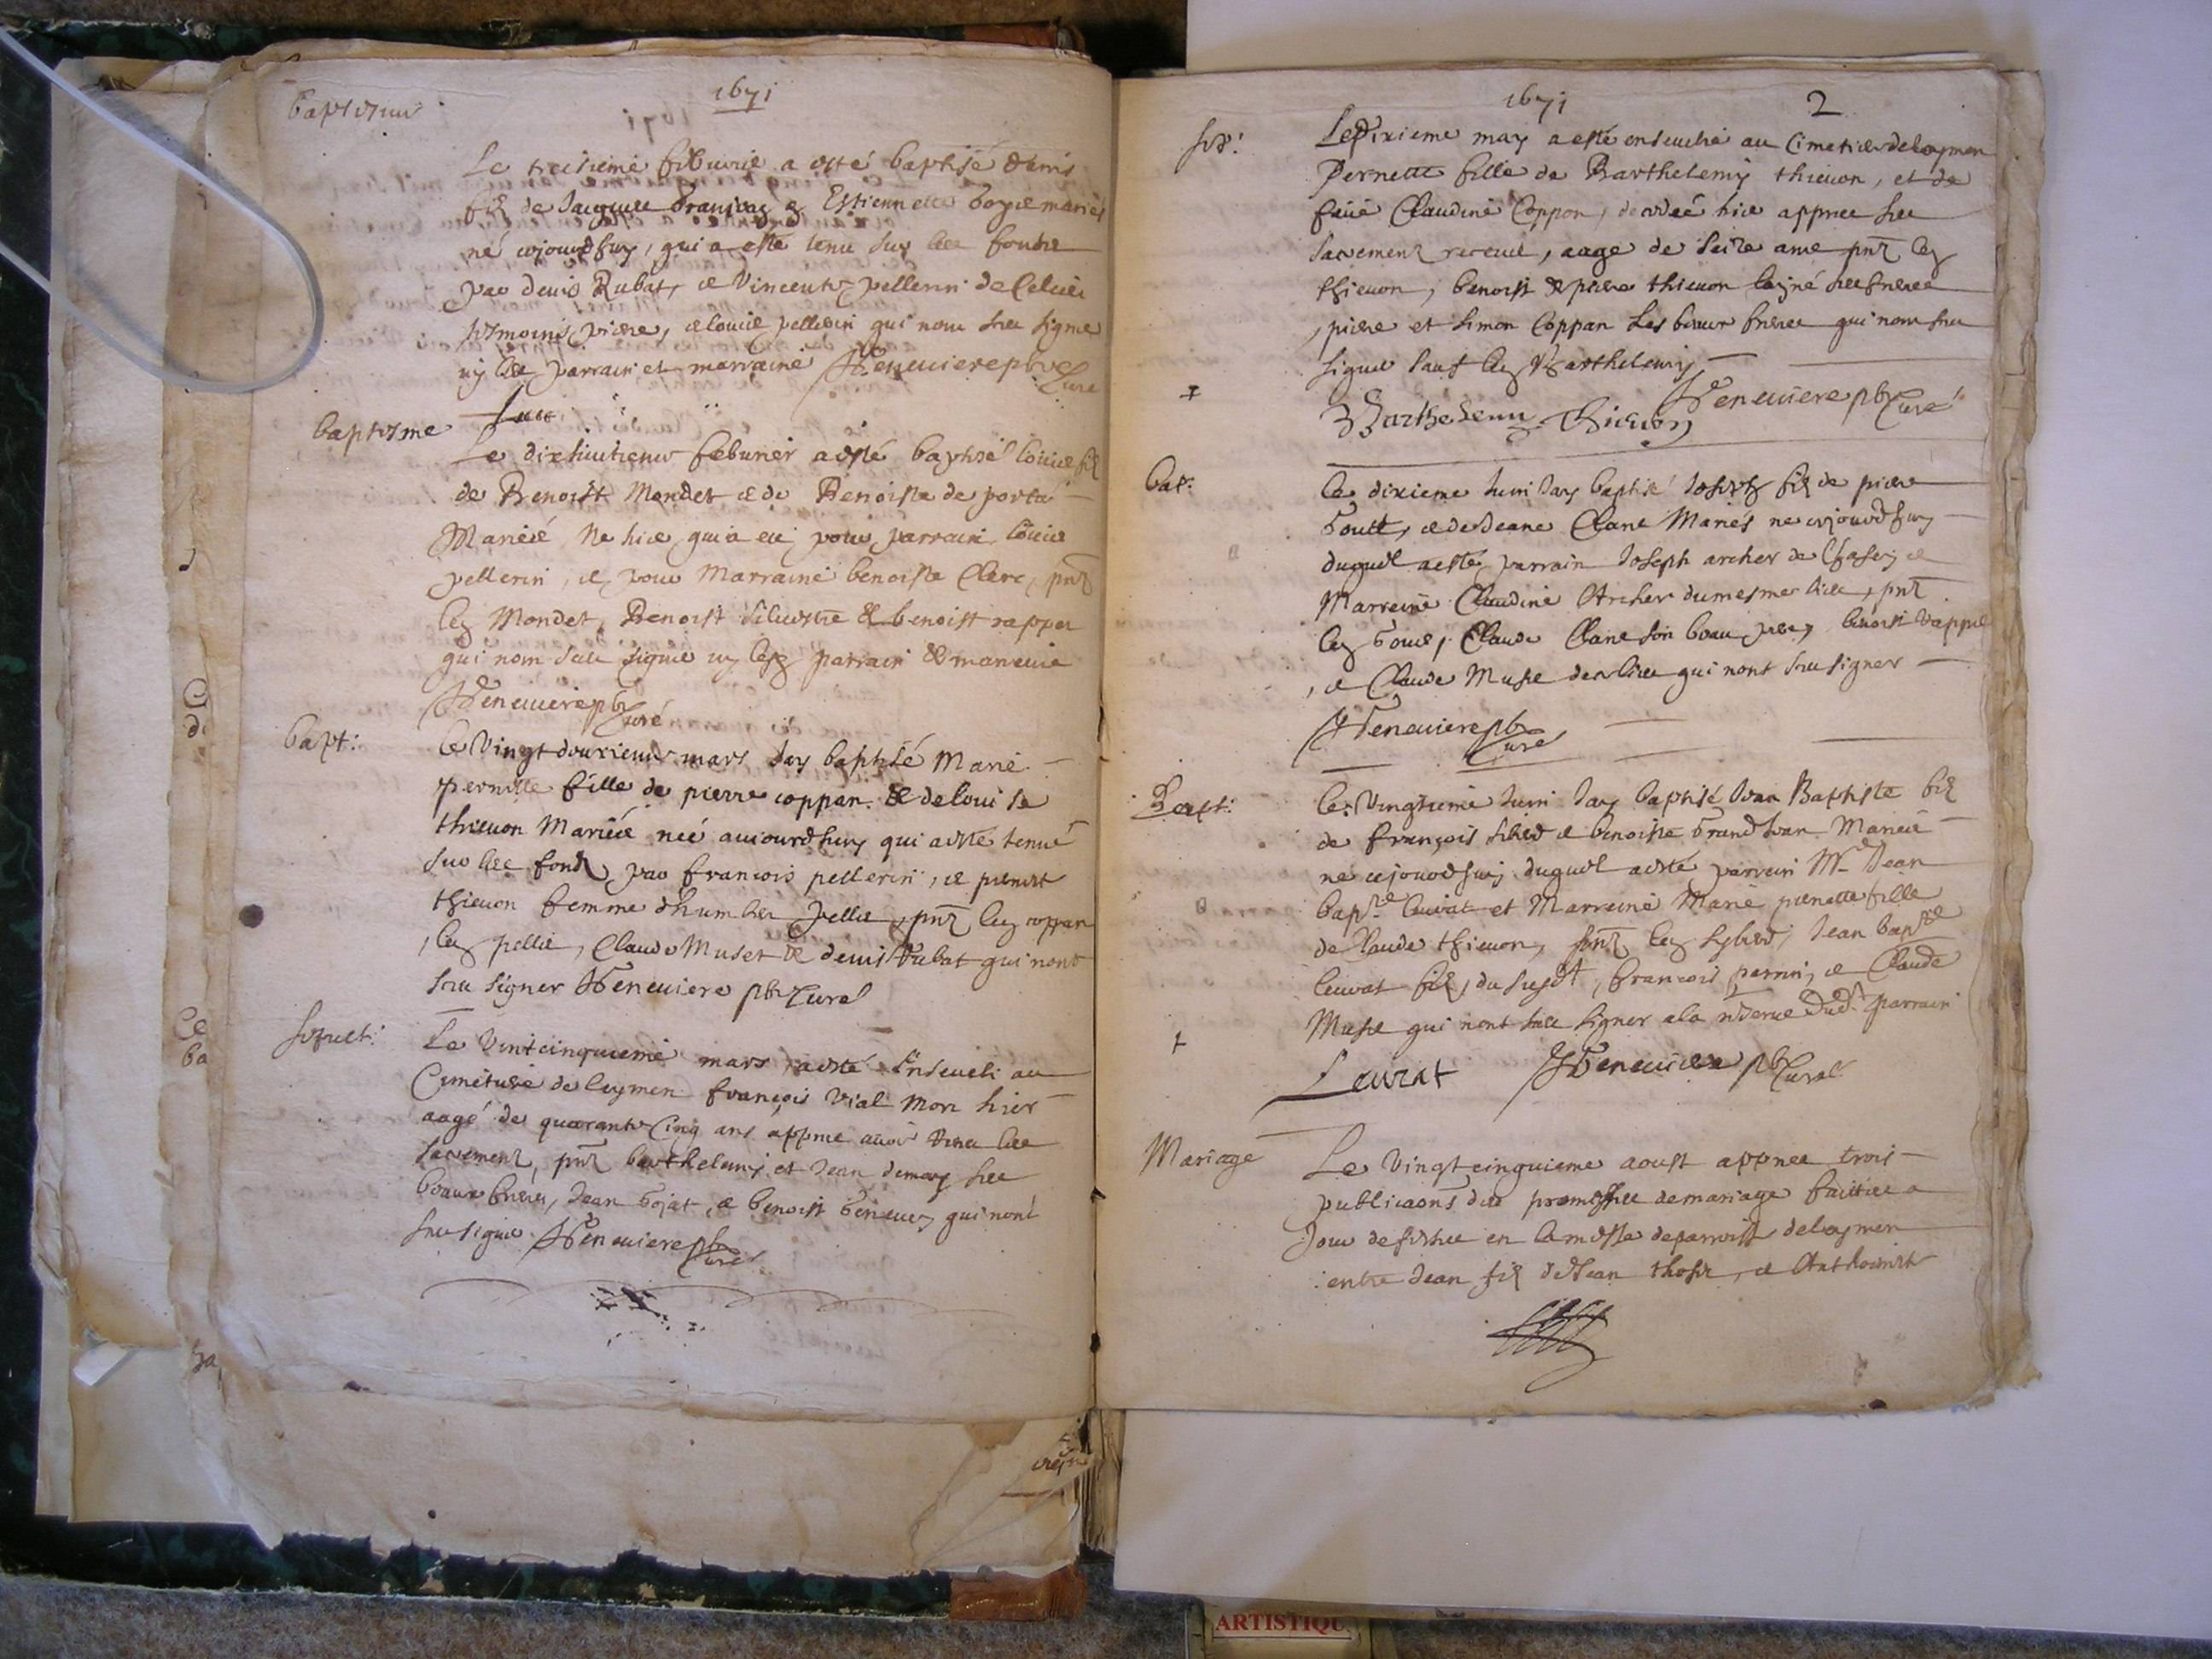 1671
baptesme
Le treisieme feburier a esté baptisé denis
filz de Jacques & Estiennette mariés
né aiourdhuy, qui a esté tenu sur les fonds
par denis Rubat, et Vincente pellerin de
tesmoins pierre, et louis pellerin qui nont sceu signer
ny les parrain et marraine JTeneuiere pbr
Curé
baptesme
Le dixhuitieme feburier a esté baptisé louis filz
de Benoist Mondet et de Benoiste de porta
Mariés Né hier qui a eu pour parrain louis
pellerin, et pour Marraine benoiste Clerc, pnt
led Mondet, Benoist siluestre & benoist rappet
qui nont sceu signer ny lesd parrain & marreine
JTeneuiere pbr
Curé
bapt:
Le Vingtdouxieme mars Jay baptisé Marie
pernette fille de pierre coppan & de louise
thieuon Mariés neé auiourdhuy qui a esté tenue
sur les fonds par francois pellerin, et pernete
thieuon femme dhumber pellet, pnt led coppan
, led pellet, Claude Muset & denis Rubat qui nont
sceu signer JTeneuiere pbr Curé
sepult:
Le Vintcinquieme mars a esté Enseueli au
Cimetiere de loymen françois Vial Mort hier
aagé de quarante Cinq ans appres auoir receu les
sacremens, pnt barthelemy et Jean demay ses
beaux freres, Jean bojat, et benoist qui nont
sceu signer JTeneuiere pbr
Curé
1671
2
sep:
Le Dixieme may a esté enseuelie au Cimetiere de loymen
Pernette fille de Barthelemy thieuon, et de
feüe Claudine Coppon, decedeé hier appres ses
sacremens receus, aage de seize ans pnt led
thieuon, benoist & pierre thieuon laisné ses freres
, pierre et simon Coppan ses beaux freres qui nont sceu
signer sauf led Barthelemy
JTeneuiere pbr Curé
Barthelemy Thieuon
bap:
Le dixieme Juin Jay baptisé Joseph filz de pierre
et de Jeane Clane Mariés né aujourdhuy
duquel a esté parrain Joseph archer de et
Marreine Claudine Archer du mesme lieu, pnt
led Claude Clane son beau pere, benoist rappet
, et Claude Muset dud lieu qui nont sceu signer
JTeneuiere pbr
Curé
Bapt:
Le Vingtieme Juin Jay baptisé Jean Baptiste filz
de françois et benoiste Mariés
né aujourdhuy duquel a esté parrain Mre Jean
bapte leurat et Marreine Marie pernette fille
de Claude thieuon, pnt led Jean bapte
leurat filz du susdt, francois perrin, et Claude
Muset qui nont sceu signer a la reserue dudt parrain
Leurat JTeneuiere pbr Curé
Mariage
Le Vingtcinquieme aoust appres trois
publicaons des promesses de mariage faittes a
Jour de festes en la messe de parroisse de loymen
entre Jean filz de Jean et Anthoinete